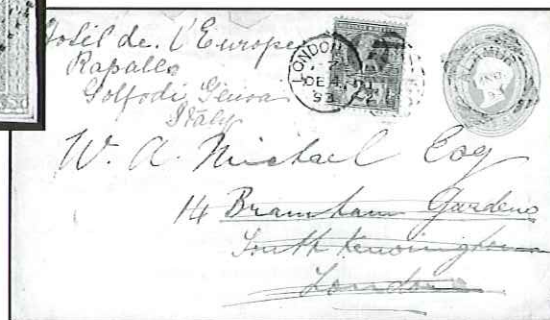 Hotel de. l'Europe
Rapallo
Golfo di Genoa
Italy
LONDON
DE 4
93
22
W. A. Michael Esq
14 Bramham Gardens
South Kensington
London